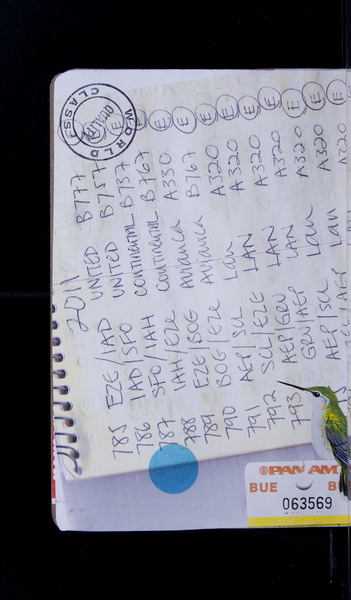 2011
785 EZE/IAD UNITED B777
786 IAD/SFO UNITED B757 E
787 SFO/IAH CONTINENTAL B737 E
788 IAH/EZE CONTINENTAL B767 E
789 EZE/BOG Avianca A330 E
790 BOG/EZE Avianca B767 E
791 AEP/SCL Lan A320 E
792 SCL/EZE LAN A320 E
793 AEP/GRU LAN A320 E
GRU/AEP LAN A320 E
AEP/SCL Lan A320 E
/AEP Lan A320 E
WORLD
CLASS
PAN AM
BUE
063569